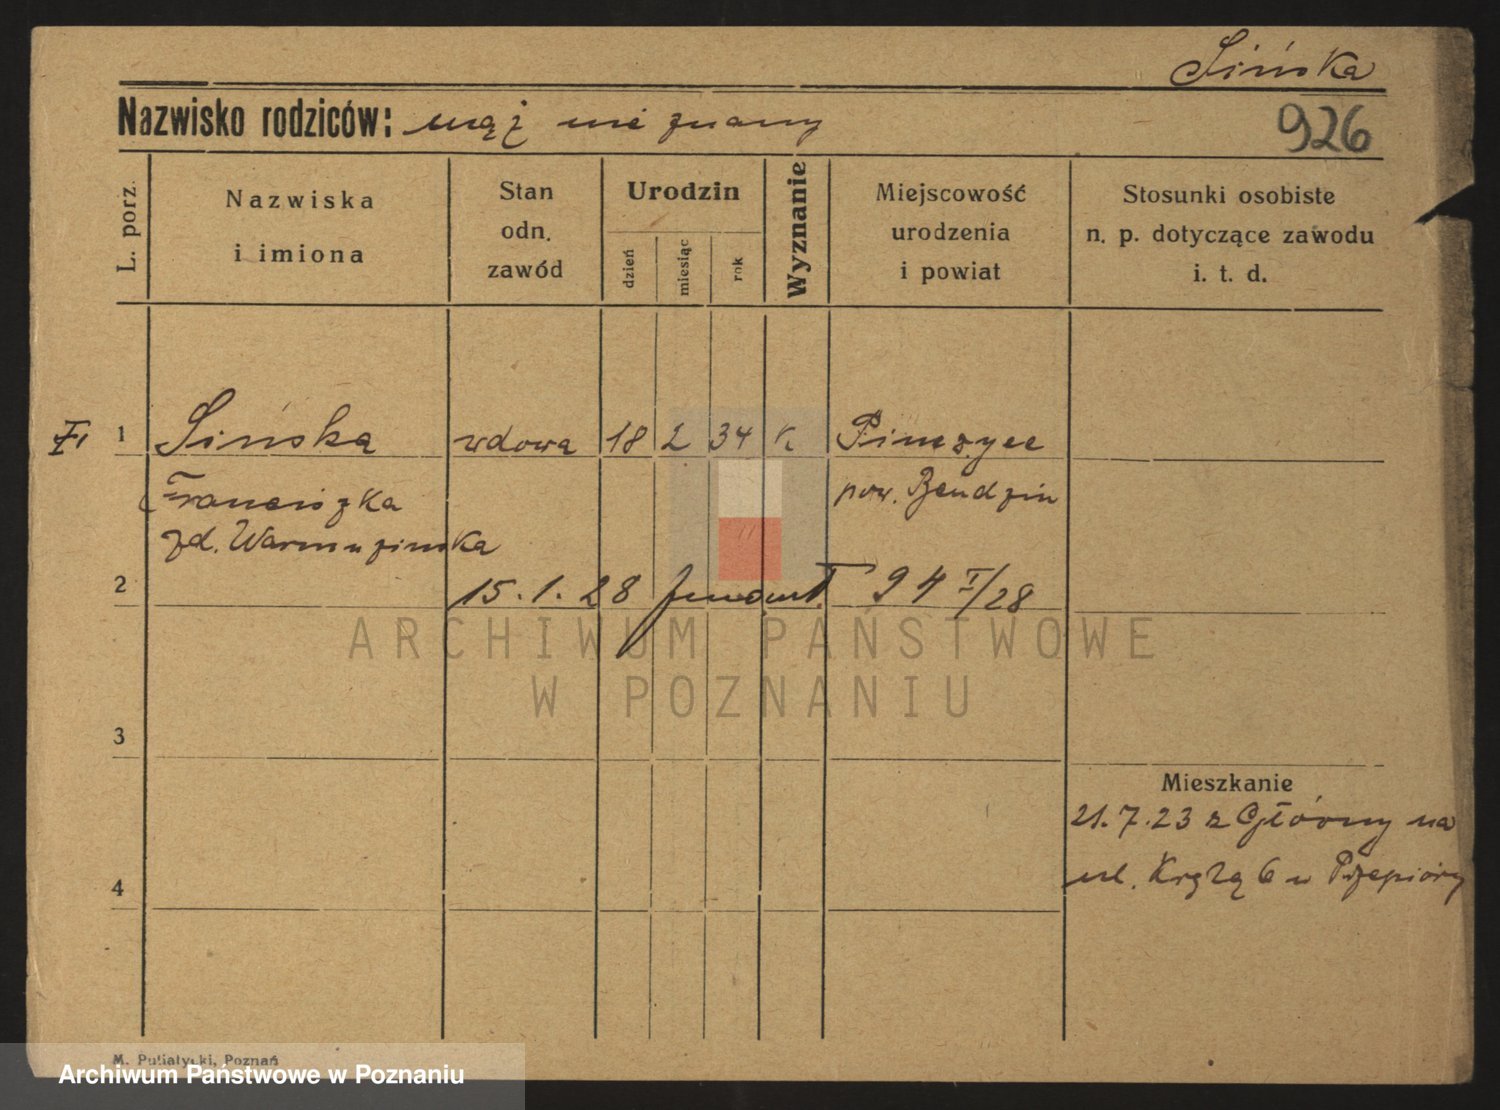 Sińska
Nazwisko rodziców: mąż nie znany
926
L. porz.
Nazwiska
i imiona
Stan
odn.
zawód
Urodzin
dzień
miesiąc
rok
Wyznanie
Miejscowość
urodzenia
i powiat
Stosunki osobiste
n. p. dotyczące zawodu
i. t. d.
1 Sińska wdowa 18 2 34 K
Franciszka pow. Bendzin
zd. Warmuzinska
2 15.1.28 94 I/28
ARCHIWUM PAŃSTWOWE
W POZNANIU
3
Mieszkanie
21.7.23 z Główny na
4 ul. 6 u
M. Putiatycki, Poznań
Archiwum Państwowe w Poznaniu